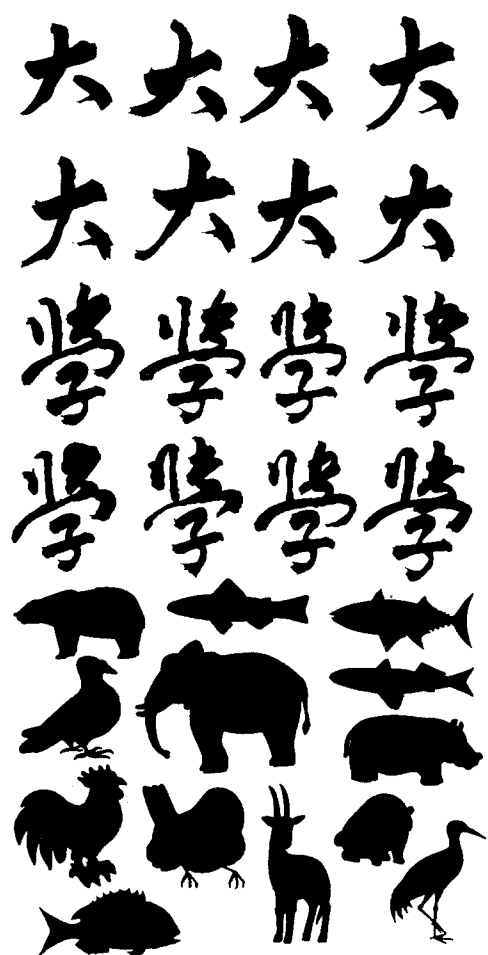 大 大 大 大
大 大 大 大
學 學 學 學
學 學 學 學